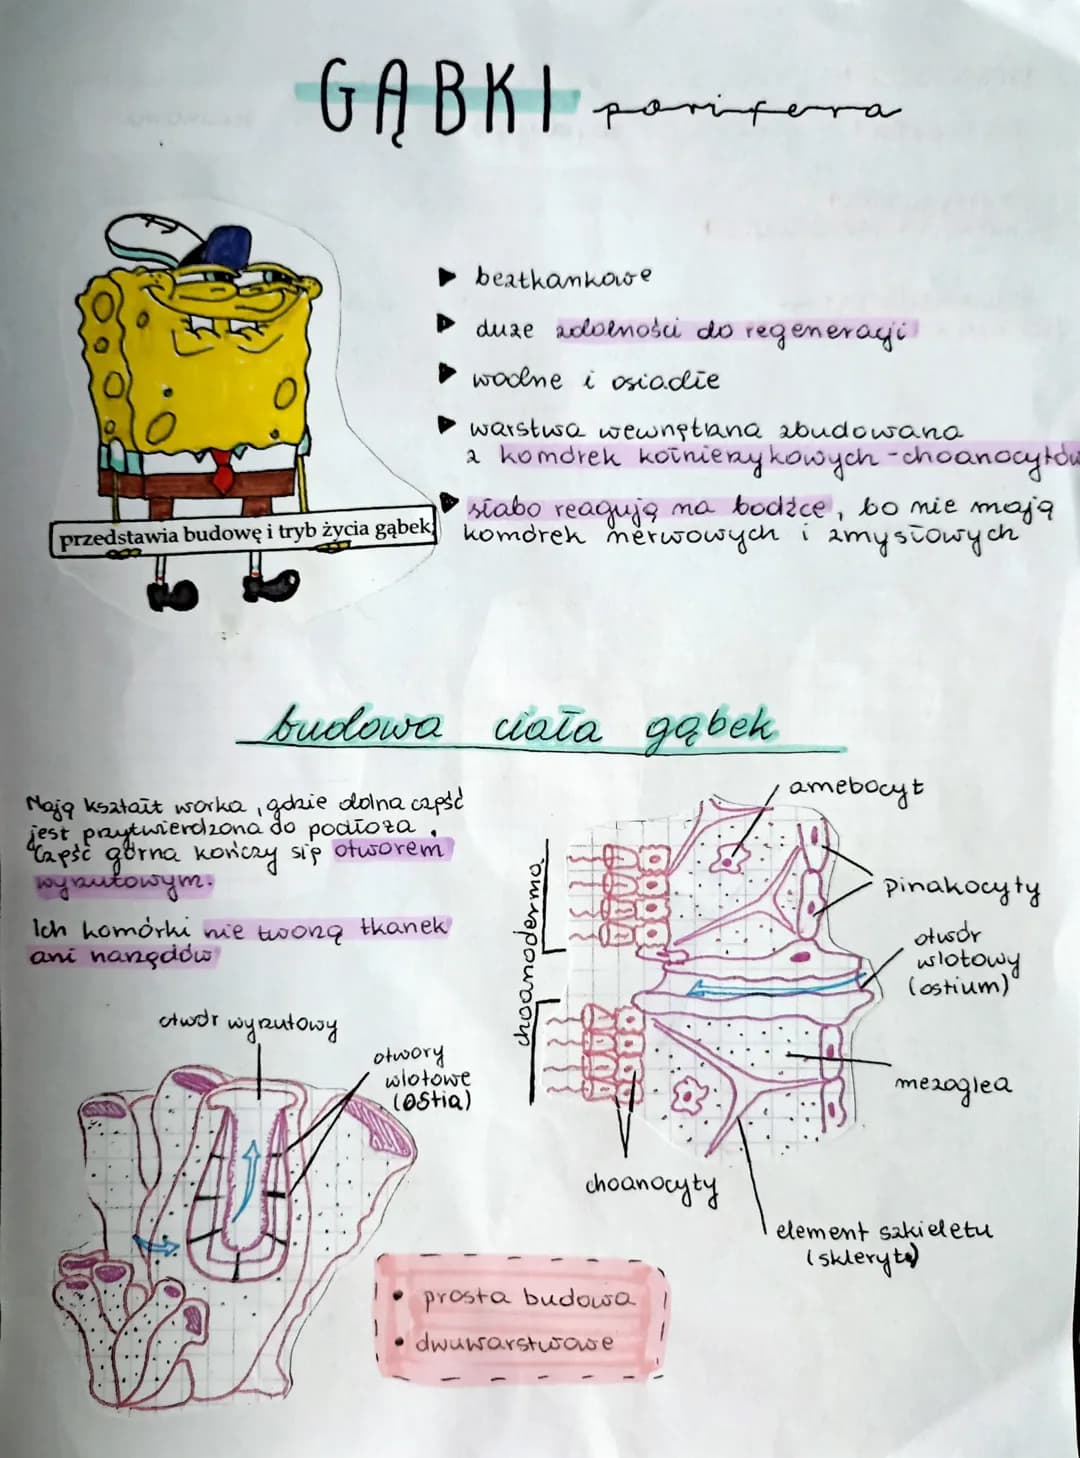 GĄBKI porifera
▶ beztkankowe
▶ duże zdolności do regeneracji
▶ wodne i osiadłe
▶ warstwa wewnętrzna zbudowana
z komórek kołnierzykowych - choanocytów
▶ słabo reagują na bodźce, bo nie mają
komórek nerwowych i zmysłowych
przedstawia budowę i tryb życia gąbek;
budowa ciała gąbek
Mają kształt worka, gdzie dolna część
jest przytwierdzona do podłoża.
Część górna kończy się otworem
wyrzutowym.
Ich komórki nie tworzą tkanek
ani narządów
otwór wyrzutowy
otwory
wlotowe
(ostia)
amebocyt
pinakocyty
otwór
wlotowy
(ostium)
choanoderma
mezoglea
choanocyty
element szkieletu
(skleryt)
• prosta budowa
• dwuwarstwowe